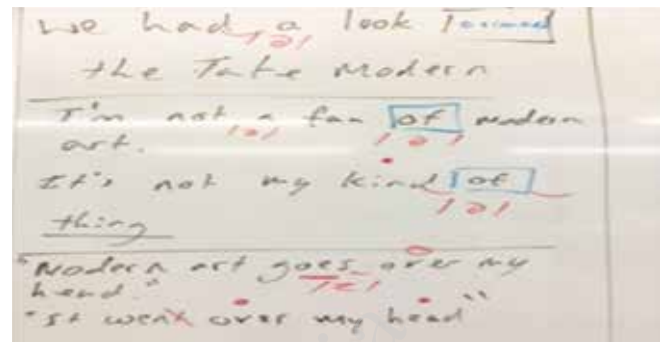 we had a look around
/ə/
the Tate Modern
I'm not a fan of modern
/ə/ /ə/
art.
It's not my kind of
/ə/
thing
"Modern art goes over my
/z/
head."
"It went over my head"